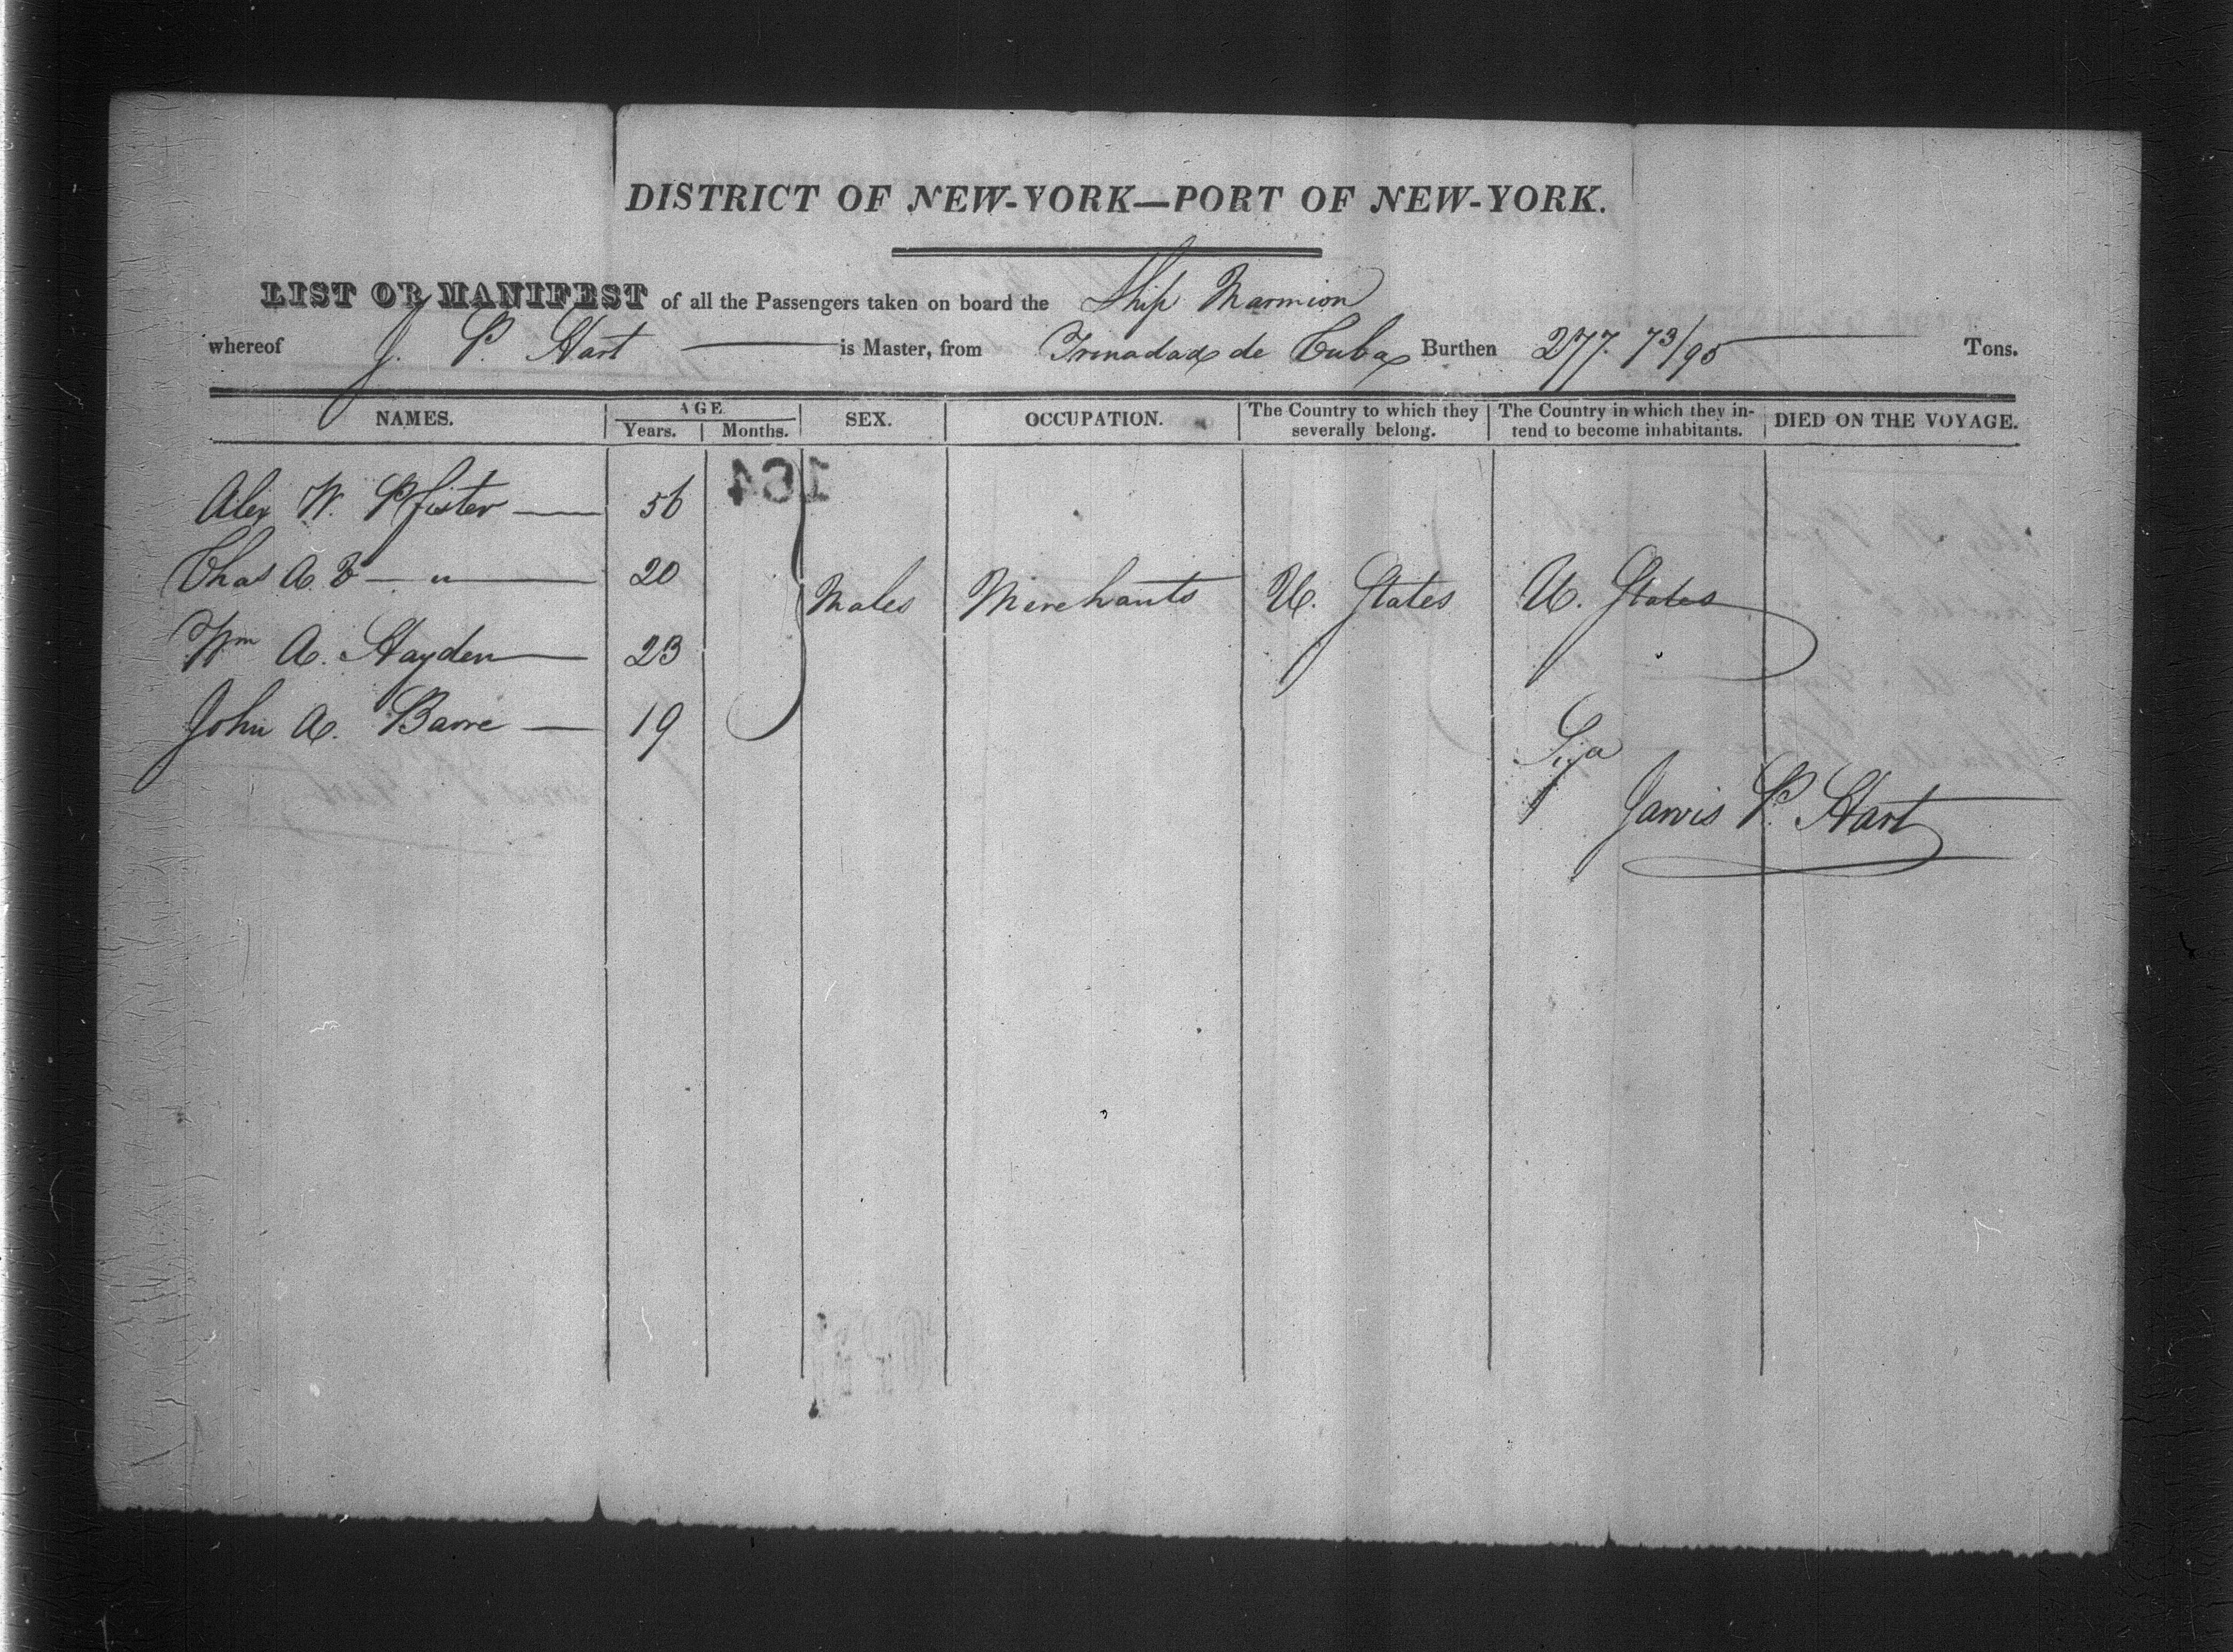 DISTRICT OF NEW-YORK—PORT OF NEW-YORK.
LIST OR MANIFEST of all the Passengers taken on board the Ship Marmion
whereof J. P. Hart is Master, from Trinadad de Cuba Burthen 277. 73/95 Tons.
NAMES. AGE. Years. Months. SEX. OCCUPATION. The Country to which they severally belong. The Country in which they intend to become inhabitants. DIED ON THE VOYAGE.
164
Alex W. Pfister — 56
Chas A. — " — 20
Males Merchants U. States U. States
Wm A. Hayden — 23
John A. Barre — 19
Jarvis P. Hart